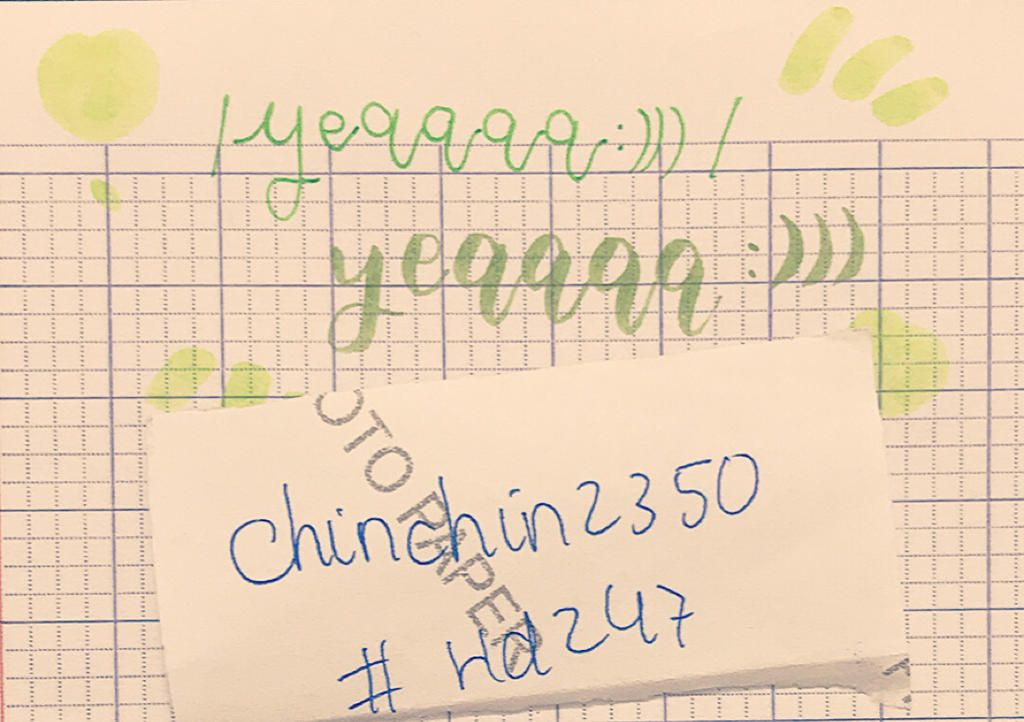 /yeaaaa:)))/
yeaaaa:)))
OTO PAPER
chinchin2350
#Hd247